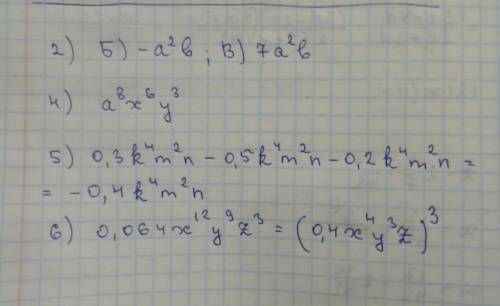 2) Б) -a²b ; В) 7a²b
4) a⁸x⁶y³
5) 0,3k⁴m²n - 0,5k⁴m²n - 0,2k⁴m²n =
= - 0,4k⁴m²n
6) 0,064x¹²y⁹z³ = (0,4x⁴y³z)³